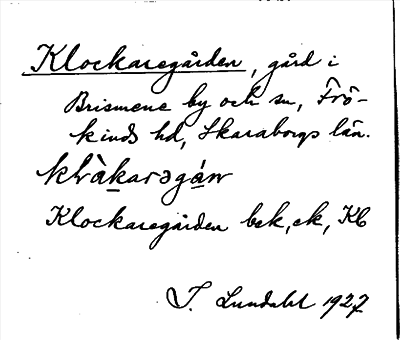 Klockaregården, gård i
Brismene by och sn, Frö-
kinds hd, Skaraborgs län.
klὰkarəgán
Klockaregården bek, ek, Kb
J. Lundahl 1927